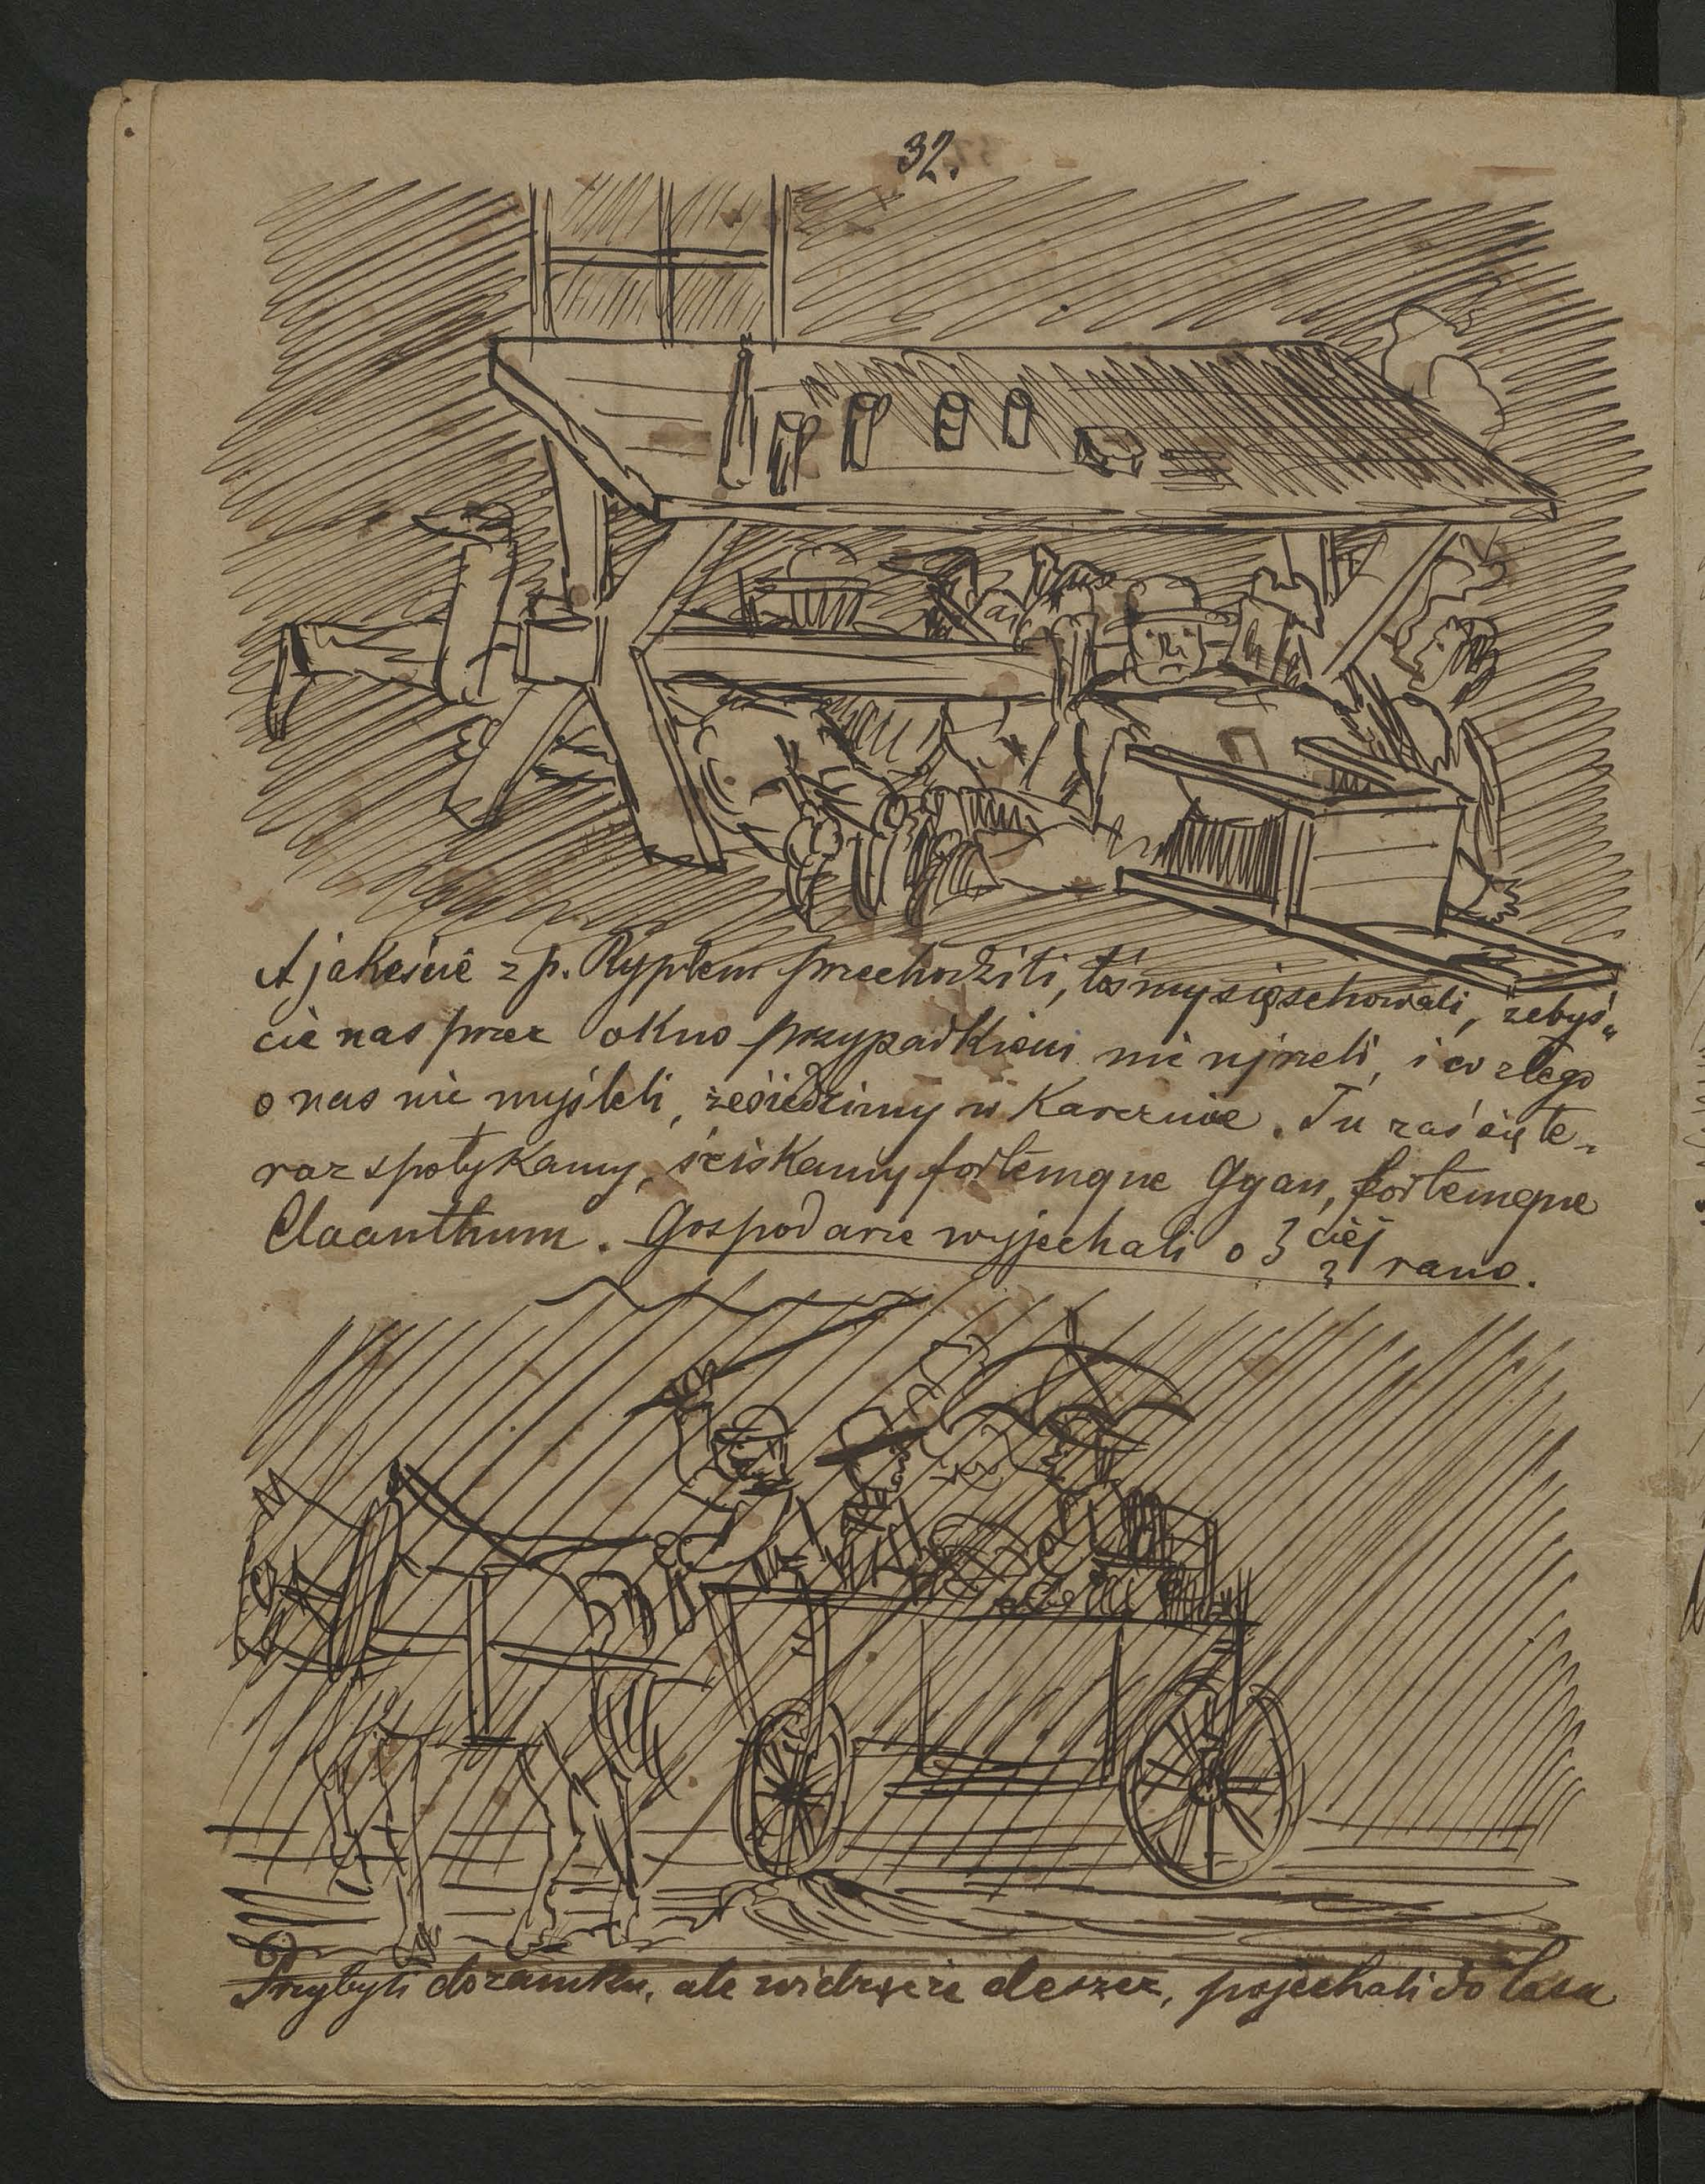 32.
A jakeście z p. Rypłem przechodzili, tośmy się schowali, żebyś„
cie nas przez okno przypadkiem nie ujrzeli, i co złego
o nas nie myśleli, że siedzimy w Karczmie. Tu zaś się te„
raz spotykamy, ściskamy fortemque Gyan, fortemque
Cloanthum. Gospodarze wyjechali o 3 ciéj rano.
?
Przybyli do zamku, ale widząc że deszcz, pojechali do lasu